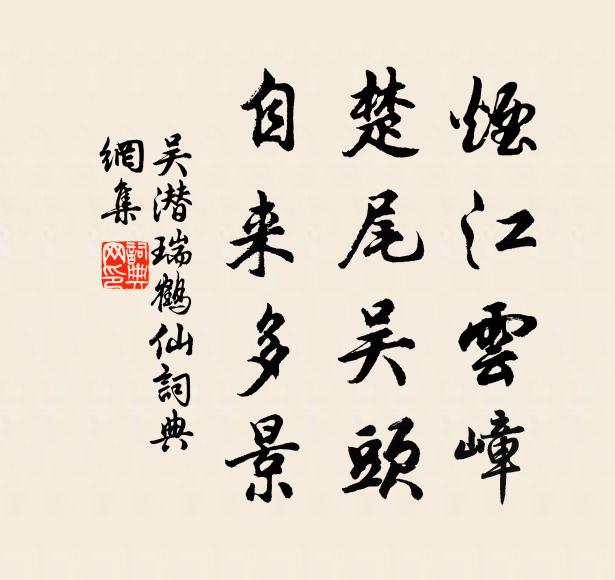 煙江雲嶂
楚尾吴頭
自来多景
吴潜瑞鶴仙詞典
網集
詞典网印